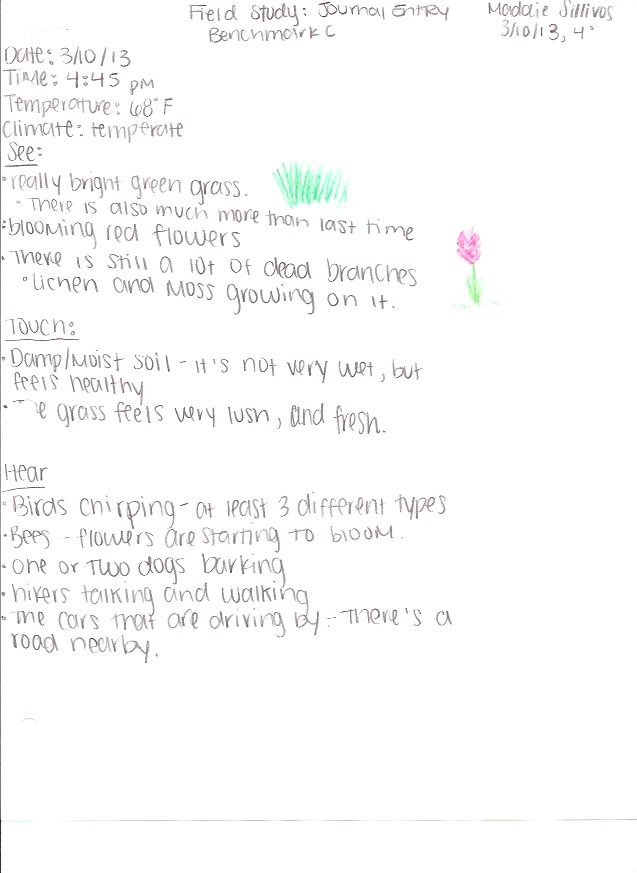 Field Study: Journal Entry
Benchmark C
Maddie Sillivos
3/10/13, 4°
Date: 3/10/13
Time: 4:45 pm
Temperature: 68°F
Climate: temperate
See:
• really bright green grass.
° There is also much more than last time
• blooming red flowers
• There is still a lot of dead branches
° lichen and Moss growing on it.
Touch:
• Damp/Moist soil - it's not very wet, but
feels healthy
• The grass feels very lush, and fresh.
Hear
• Birds chirping - at least 3 different types
• Bees - flowers are starting to bloom.
• one or two dogs barking
• hikers talking and walking
• The cars that are driving by - There's a
road nearby.